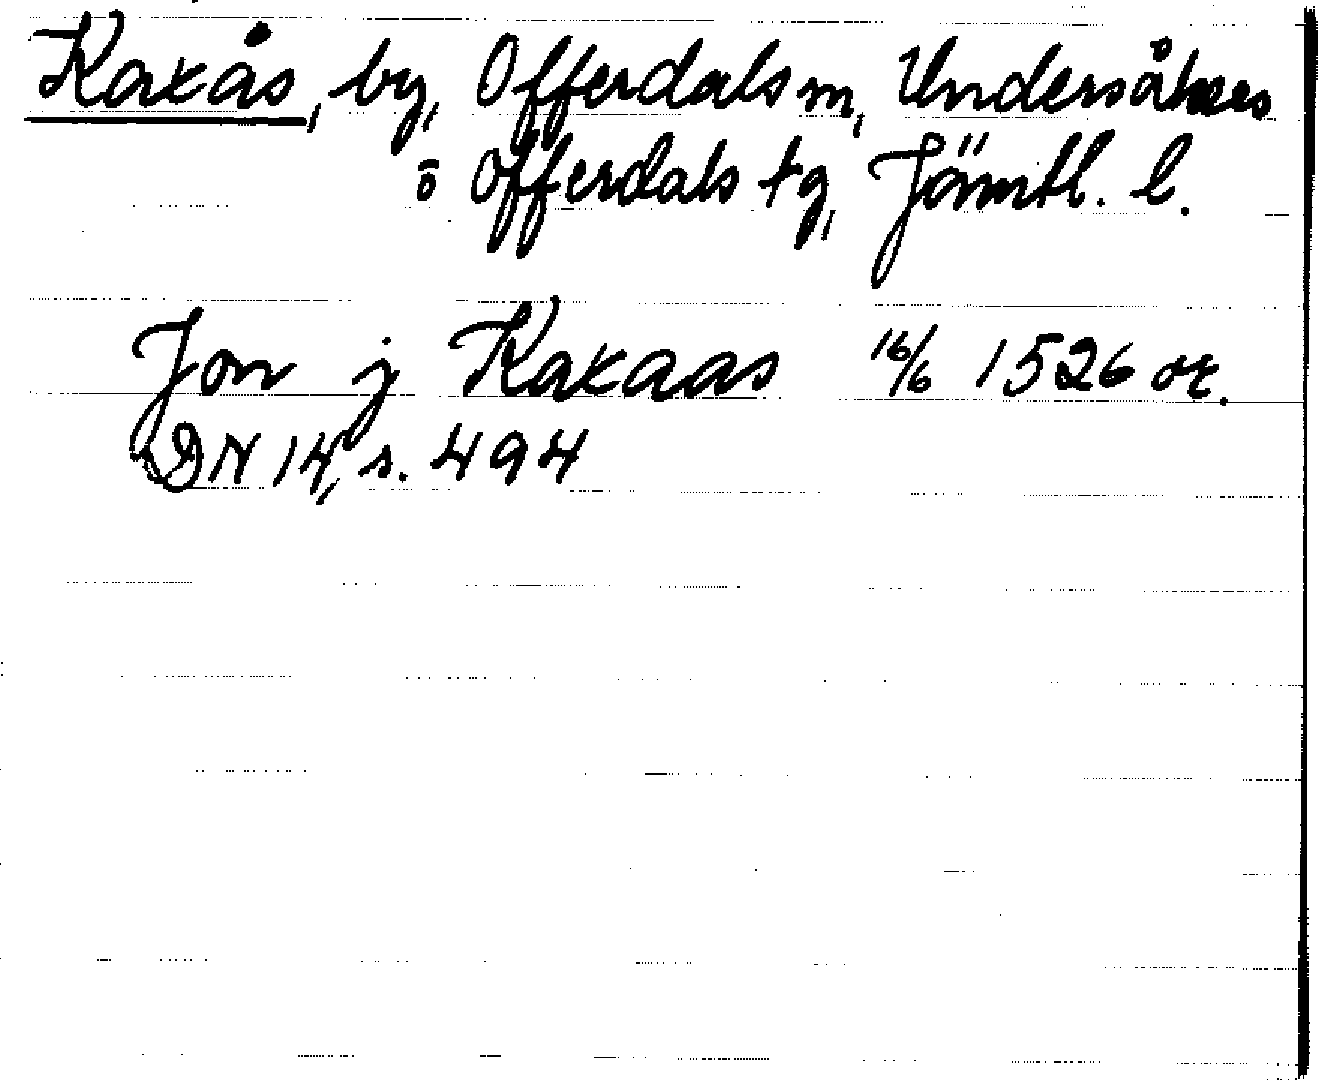 Kaxås, by, Offerdals sn, Undersåkers
o Offerdals tg, Jämtl. l.
Jon j Kaxaas 16/6 1526 or.
DN 14, s. 494